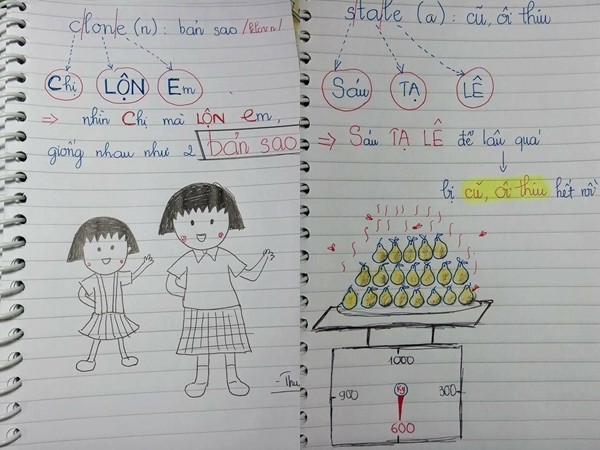 clone (n): bản sao /kloʊn/
Chị LỘN Em
⇒ nhìn Chị mà LỘN em,
giống nhau như 2 bản sao
- Thu
stale (a): cũ, ôi thiu
Sáu TẠ LÊ
⇒ Sáu TẠ LÊ để lâu quá
bị cũ, ôi thiu hết rồi
1000
900
Kg
300
600